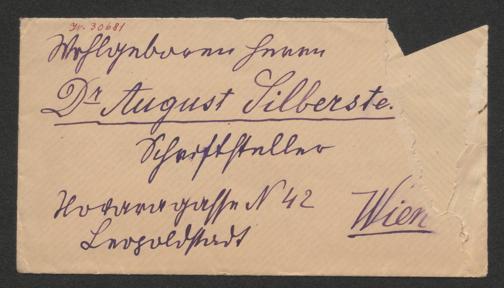 Nr. 30681
Wohlgeboren Herrn
Dr August Silberste.
Schriftsteller
Novaragasse N 42
Wien
Leopoldstadt